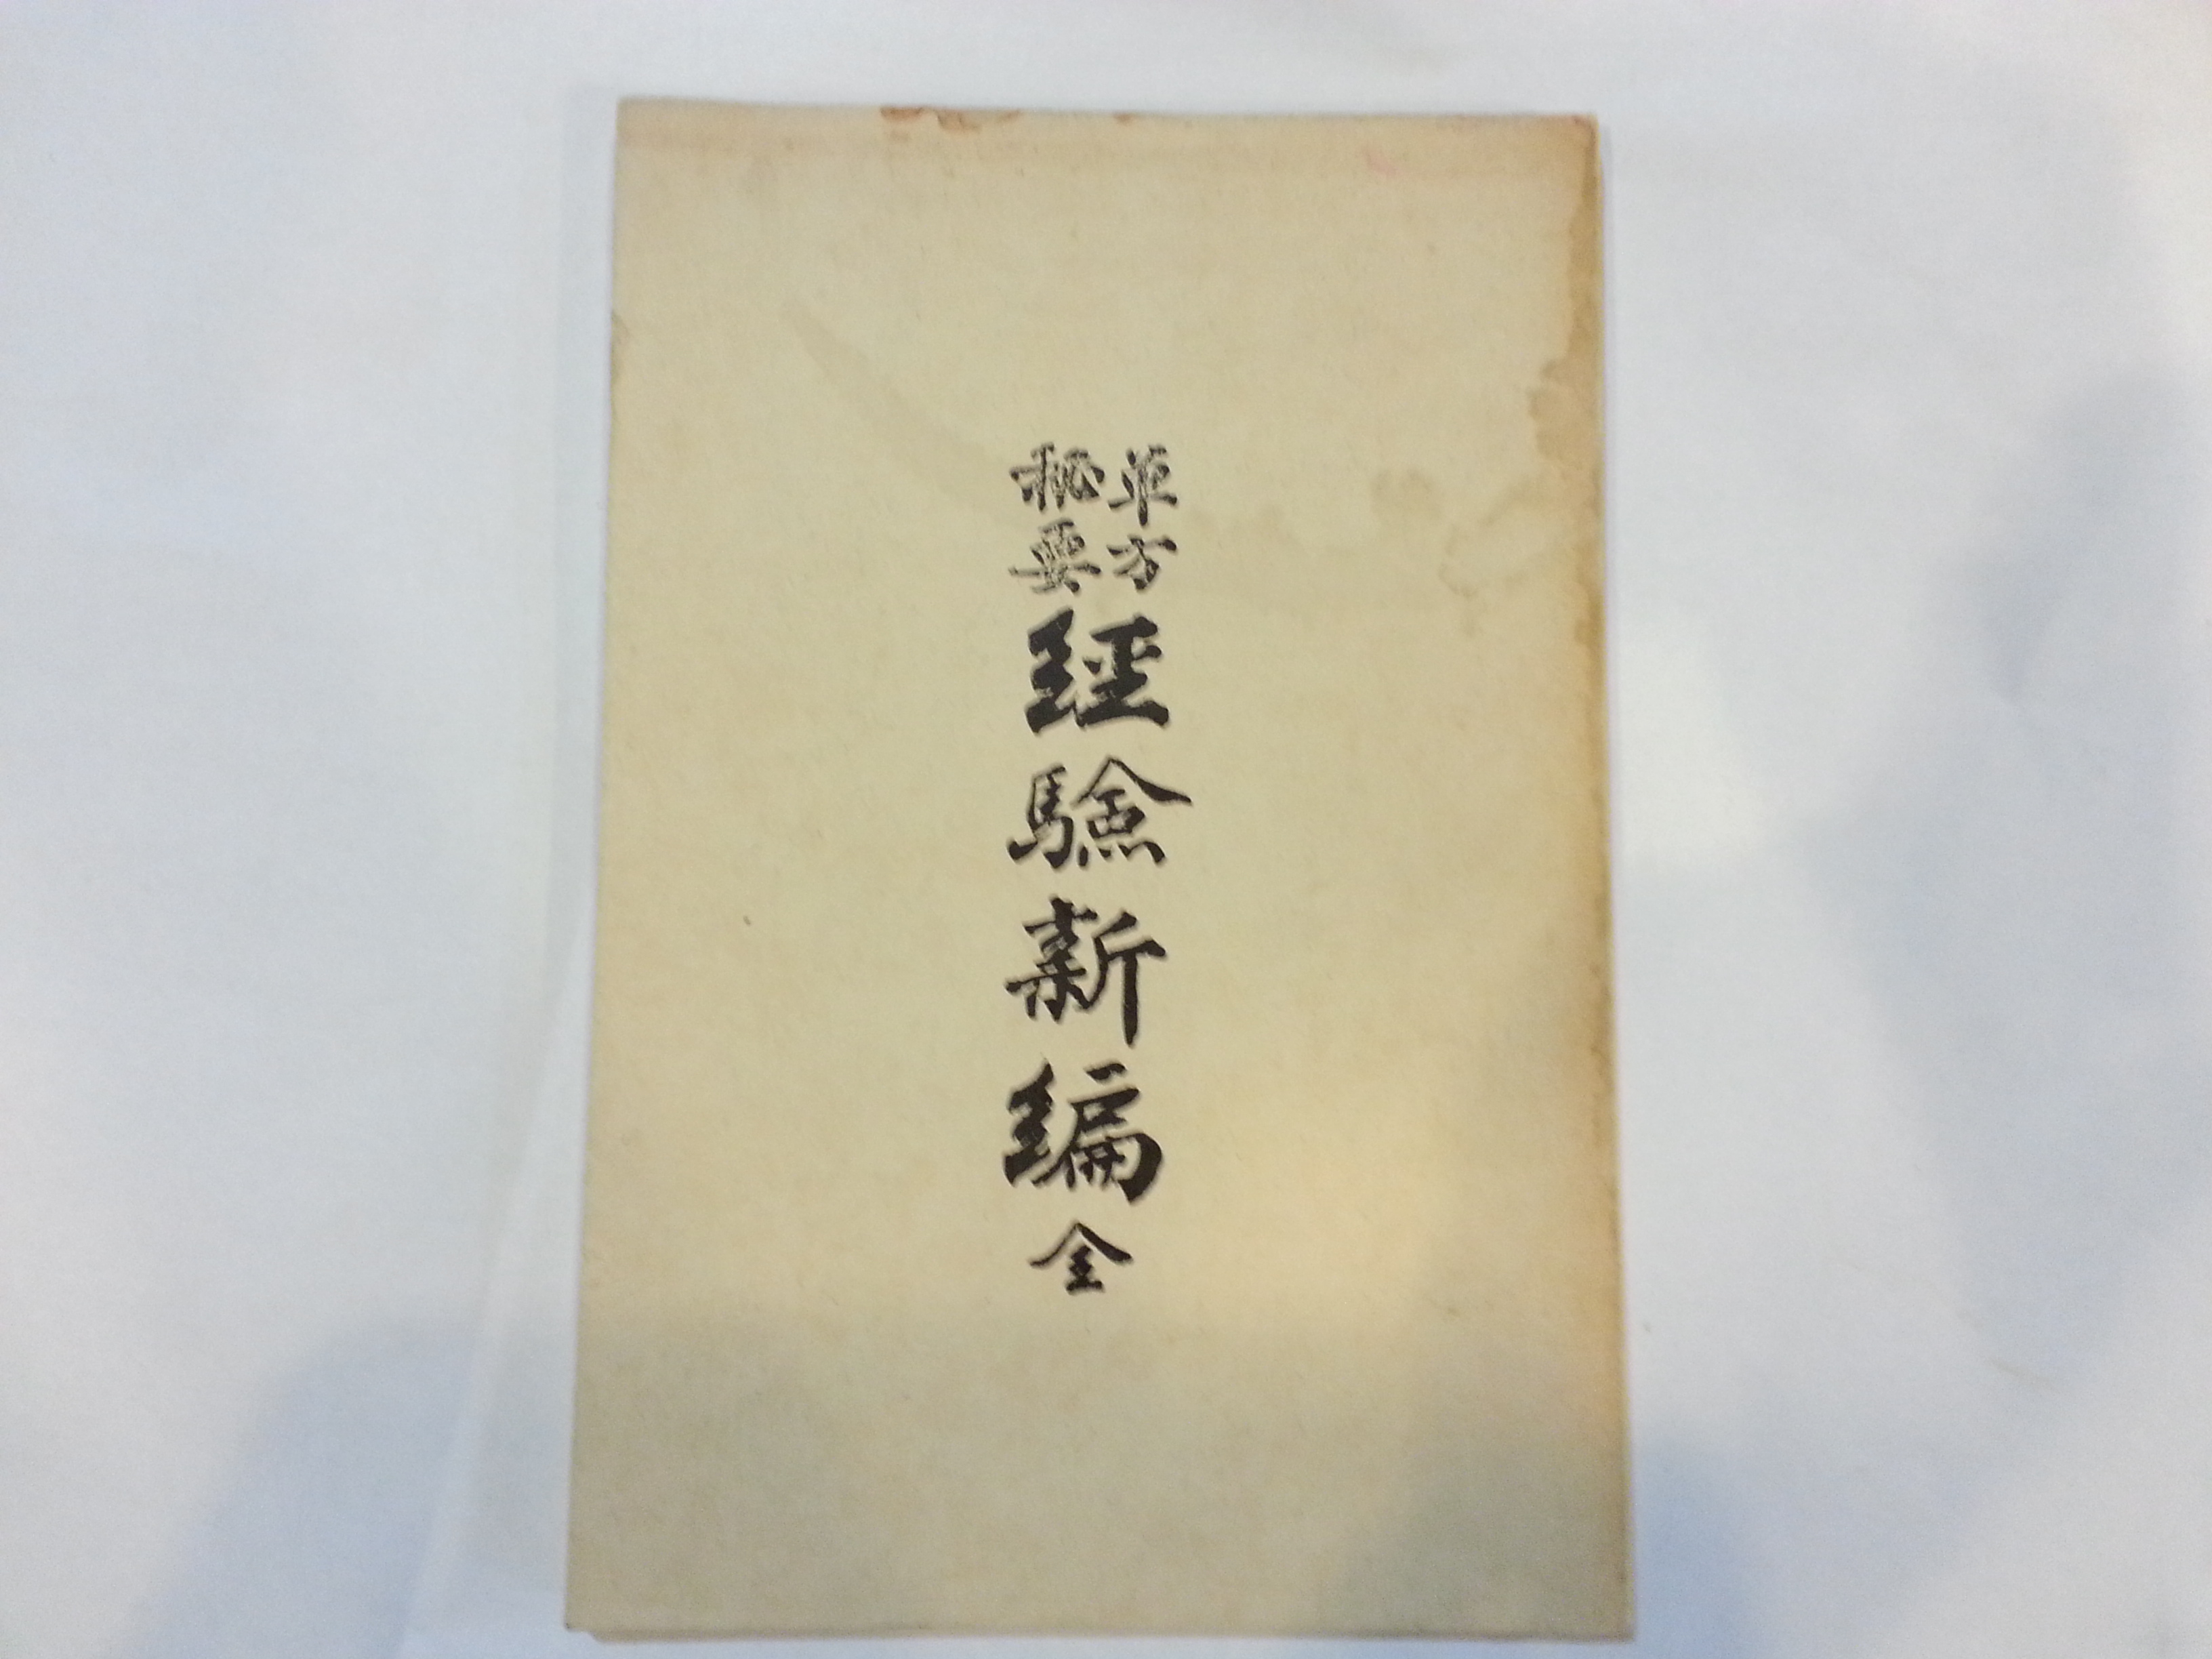 單方
秘要
經驗新編 全